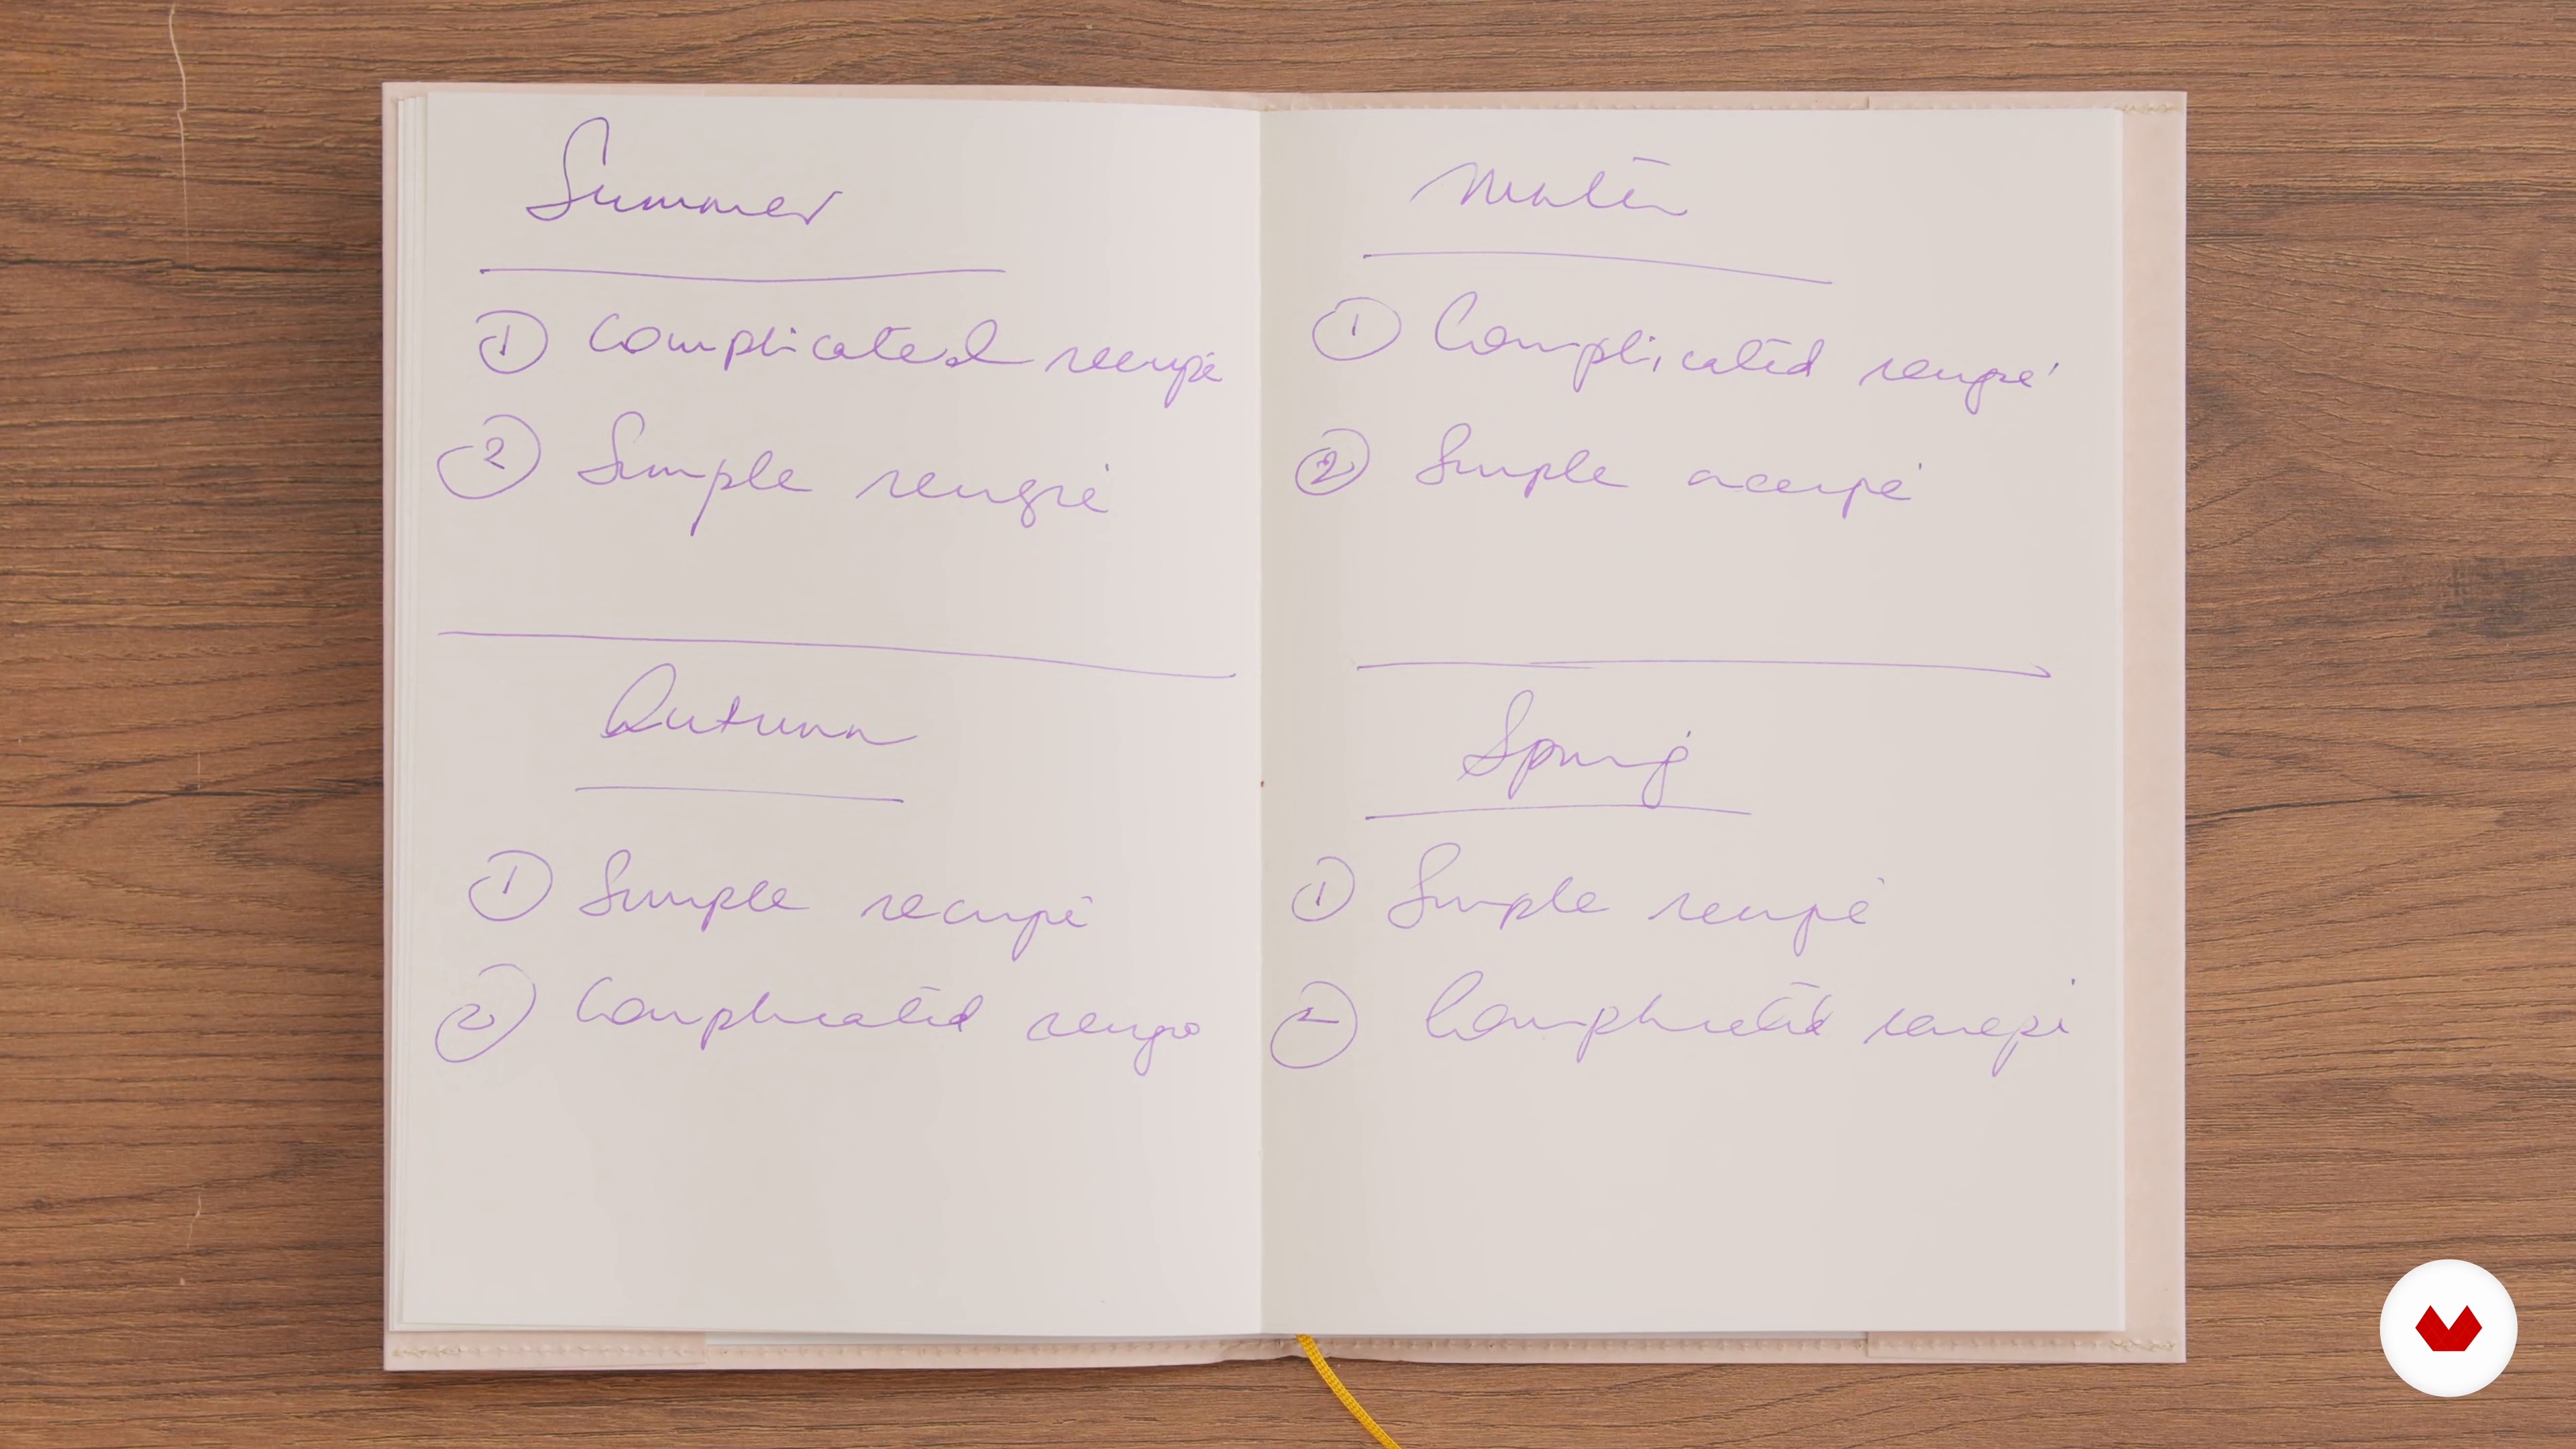 Summer
1 Complicated recipe
2 Simple recipe
Autumn
1 Simple recipe
2 Complicated recipe
Winter
1 Complicated recipe
2 Simple recipe
Spring
1 Simple recipe
2 Complicated recipe